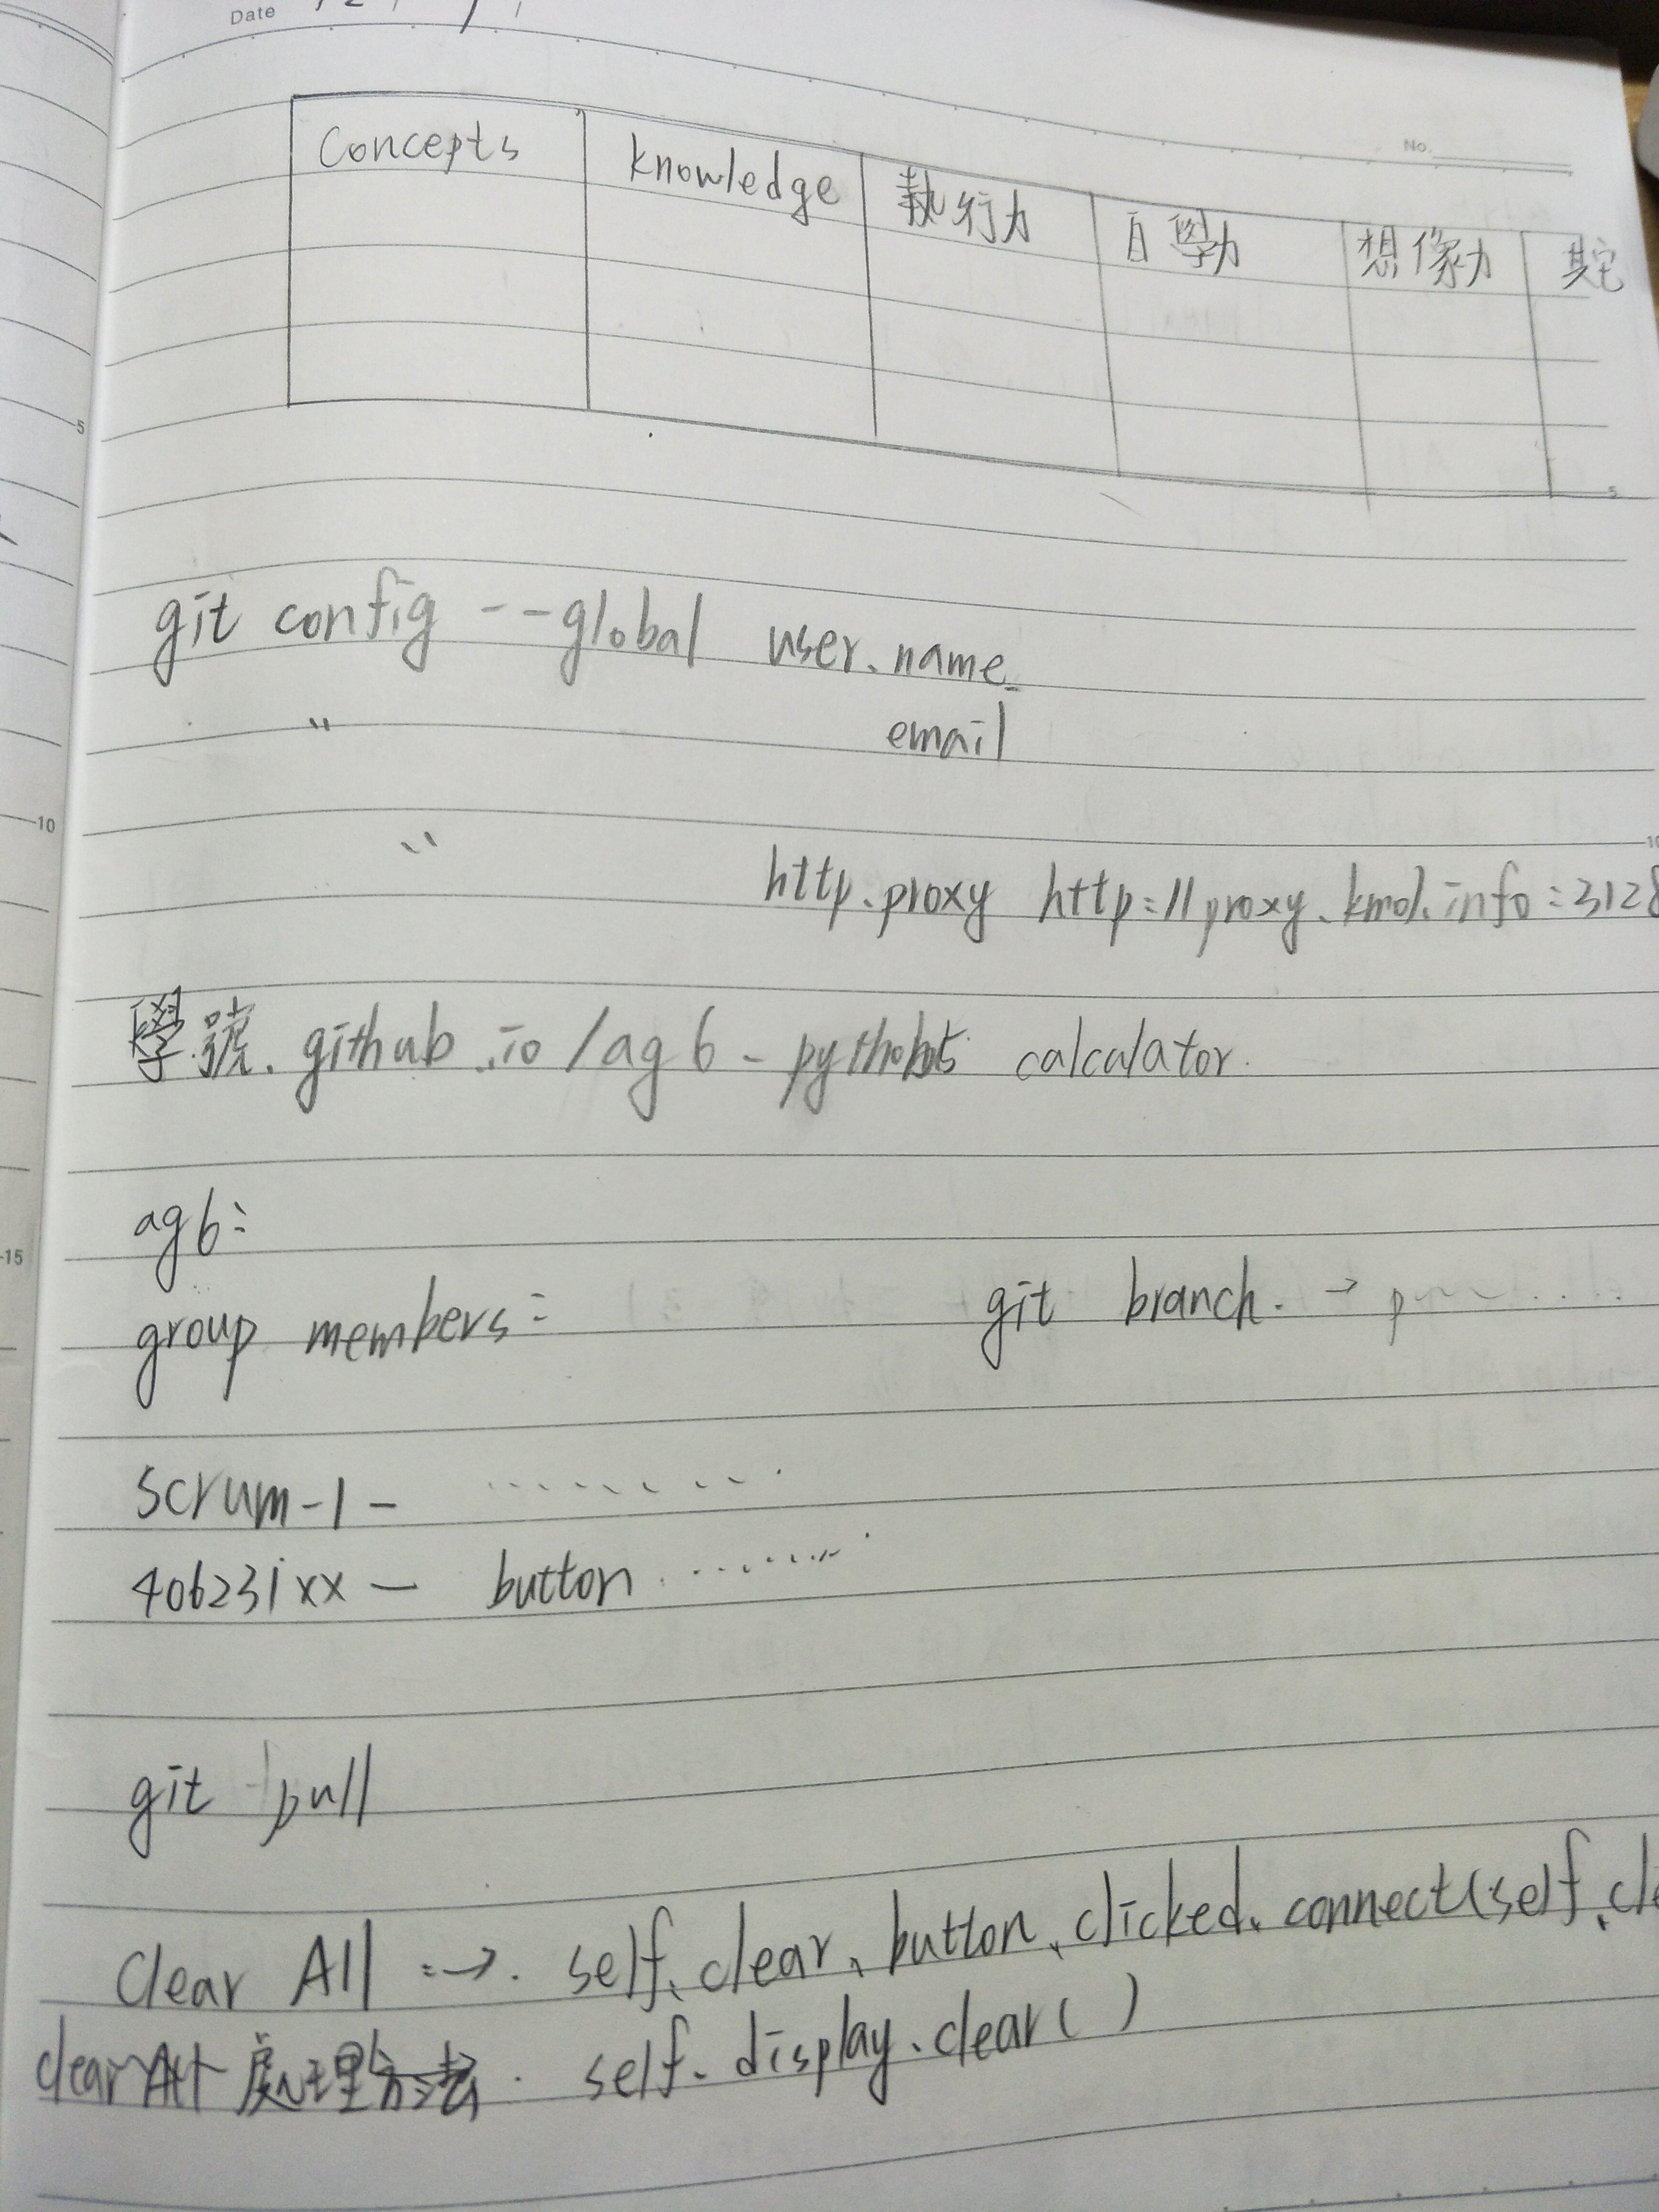 Date
No.
Concepts knowledge 執行力 自學力 想像力 其它
5
5
git config --global user.name
" email
10
10
" http.proxy http://proxy.kmol.info:3128
學號.github.io/ag6- calcalator.
ag6:
15
group members: git branch. →
scrum-1-
406231xx — button
git pull
Clear All :→. self.clear.button.clicked.connect(self.cle
clearAll 處理方法. self.display.clear()